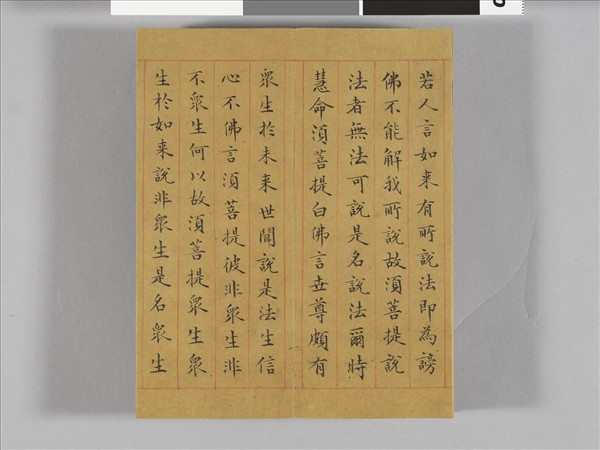 若人言如来有所說法即為謗
佛不能解我所說故須菩提說
法者無法可說是名說法爾時
慧命須菩提白佛言世尊頗有
眾生扵未来世聞說是法生信
心不佛言須菩提彼非眾生非
不眾生何以故須菩提眾生眾
生扵如来說非眾生是名眾生